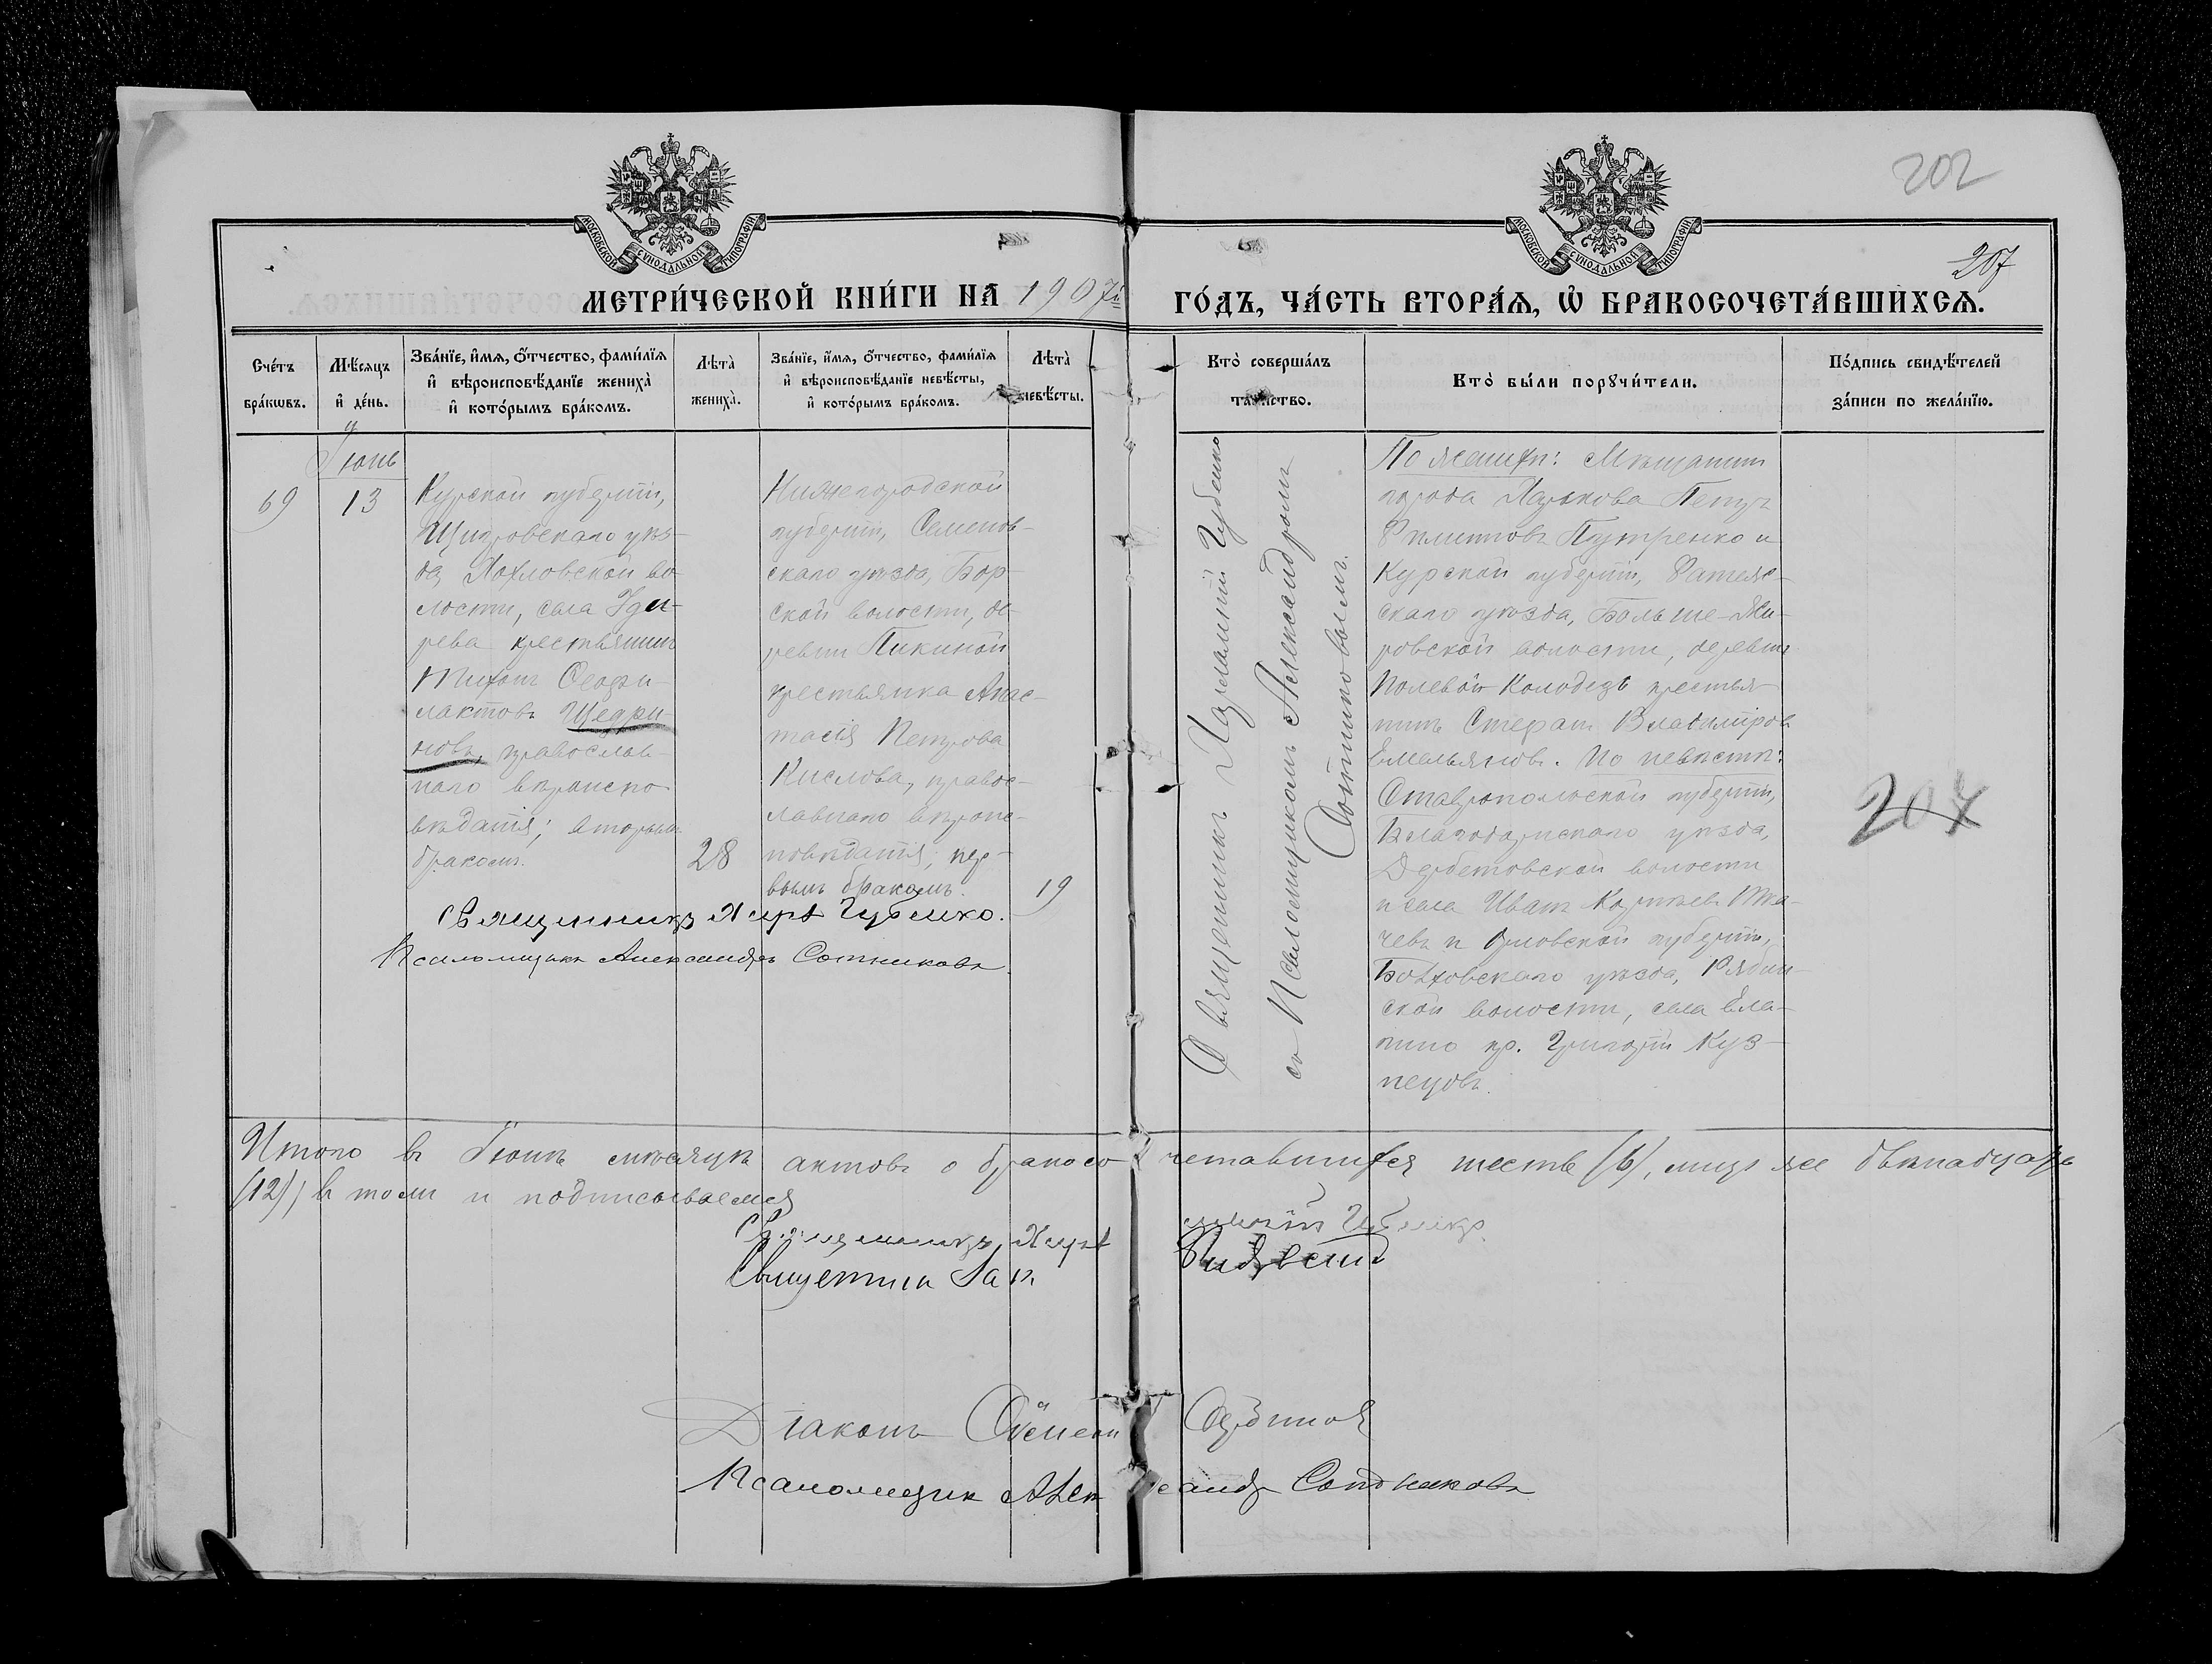 202
207
МОСКОВСКОЙ СѴНОДАЛЬНОЙ ТИПОГРАФІИ
МОСКОВСКОЙ СѴНОДАЛЬНОЙ ТИПОГРАФІИ
МЕТРИ́ЧЕСКОЙ КНИ́ГИ НА 1907й ГО́ДЪ, ЧА́СТЬ ВТОРА́Я, Ѽ БРАКОСОЧЕТА́ВШИХСЯ.
Сче́тъ бра́кѡвъ.
Мѣ́сяцъ и҆ де́нь.
Зва́нїе, и҆́мя, ѻ҆́тчество, фами́лїя
и҆ вѣроисповѣ́данїе жениха̀
и҆ кото́рымъ бра́комъ.
Лѣ́та̀ жениха̀.
Зва́нїе, и҆́мя, ѻ҆́тчество, фами́лїя
и҆ вѣроисповѣ́данїе невѣ́сты,
и҆ кото́рымъ бра́комъ.
Лѣ́та̀ невѣ́сты.
Кто̀ соверша́лъ таинство.
Кто̀ бы́ли порꙋчи́тели.
По́дпись свидѣ́телей за́писи по жела́нїю.
69
Іюнь
13
Курской губерніи,
Щигровскаго уѣз-
да, Хохловской во-
лости, села Уди-
рева крестьянинъ
Тихонъ Ѳеофи-
лактовъ Щедри-
новъ, православ-
наго вѣроиспо-
вѣданія; вторымъ
бракомъ.
28
Нижегородской
губерніи, Семенов-
скаго уѣзда, Бор-
ской волости, де-
ревни Пикиной
крестьянка Анас-
тасія Петрова
Кислова, правос-
лавнаго вѣроис-
повѣданія, пер-
вымъ бракомъ.
19
Священникъ Харл. Губенко.
Псаломщикъ Александръ Сотниковъ.
Священникъ Харлампій Губенко
съ Псаломщикомъ Александромъ
Сотниковымъ.
По женихѣ: Мѣщанинъ
города Харькова Петръ
Филипповъ Путренко и
Курской губерніи, Фатеж-
скаго уѣзда, Больше-Жи-
ровской волости, деревни
Полевой Колодезь крестья-
нинъ Стефанъ Владиміровъ
Емельяновъ. По невѣстѣ:
Ставропольской губерніи,
Благодарнскаго уѣзда,
Дербетовской волости
и села Иванъ Корнѣевъ Тка-
чевъ и Орловской губерніи,
Болховскаго уѣзда, Рябин-
ской волости, села Ела-
гино кр. Григорій Куз-
нецовъ.
207
Итого въ Іюнѣ мѣсяцѣ актовъ о бракосочетавшихся шесть (6), лицъ же двѣнадцать
(12); въ томъ и подписываемся
Священникъ Харлампій Губенко
Священникъ
Діаконъ
Псаломщикъ Александръ Сотниковъ